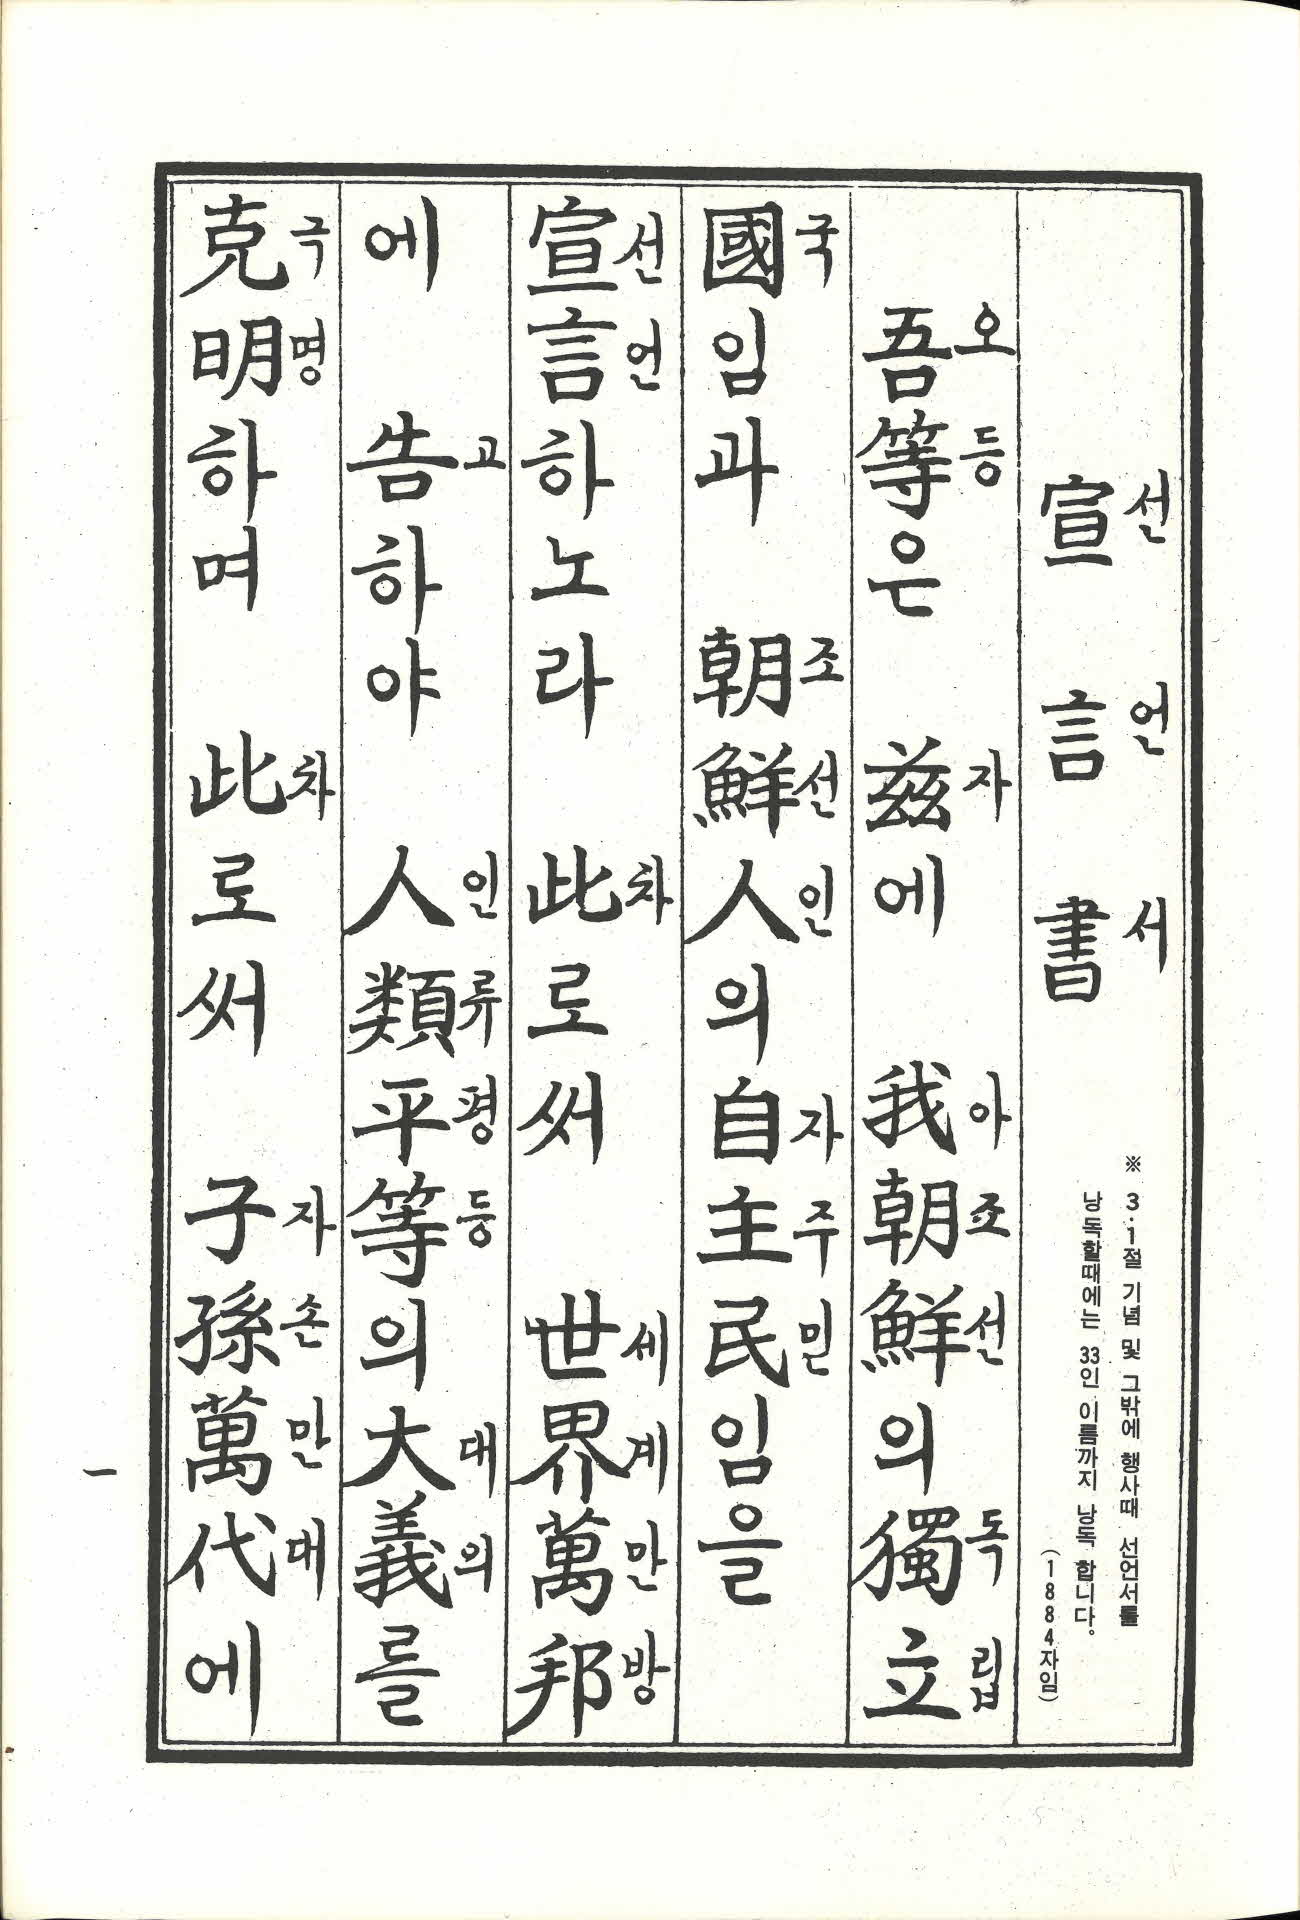 宣言書
선언서
※ 3·1절 기념 및 그밖에 행사때 선언서를
낭독할때에는 33인 이름까지 낭독 합니다.
(1884자임)
吾等은 玆에 我朝鮮의獨立
오등 자 아조선 독립
國임과 朝鮮人의自主民임을
국 조선인 자주민
宣言하노라 此로써 世界萬邦
선언 차 세계만방
에 告하야 人類平等의大義를
고 인류평등 대의
克明하며 此로써 子孫萬代에
극명 차 자손만대
一